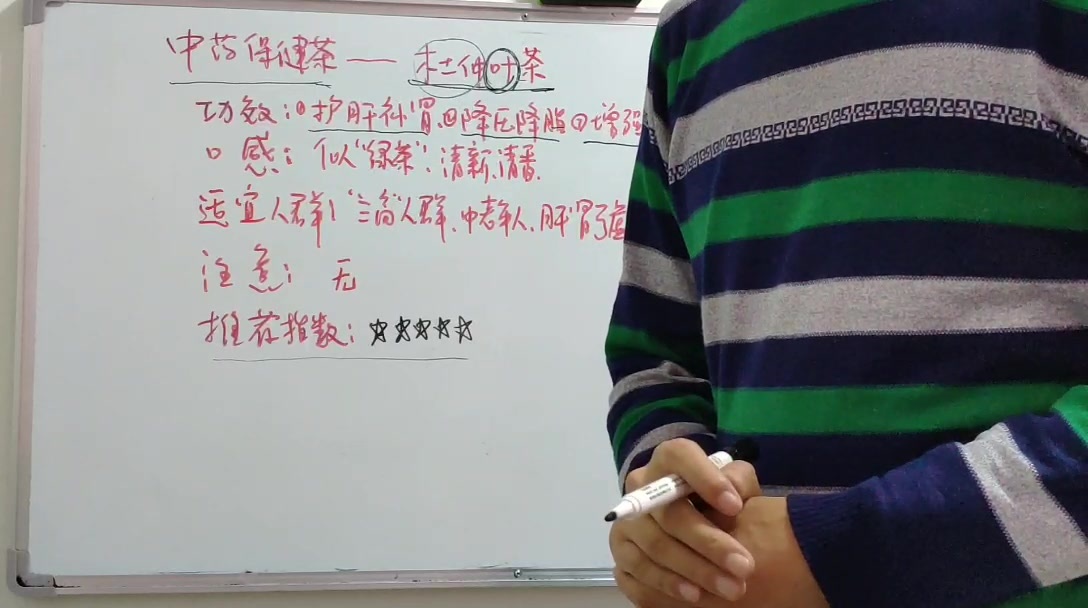 中药保健茶——杜仲叶茶
功效:①护肝补肾.②降压降脂③增强
口感:似"绿茶",清新.清香.
适宜人群:"三高"人群、中老年人、肝肾亏虚
注意:无
推荐指数:☆☆☆☆☆